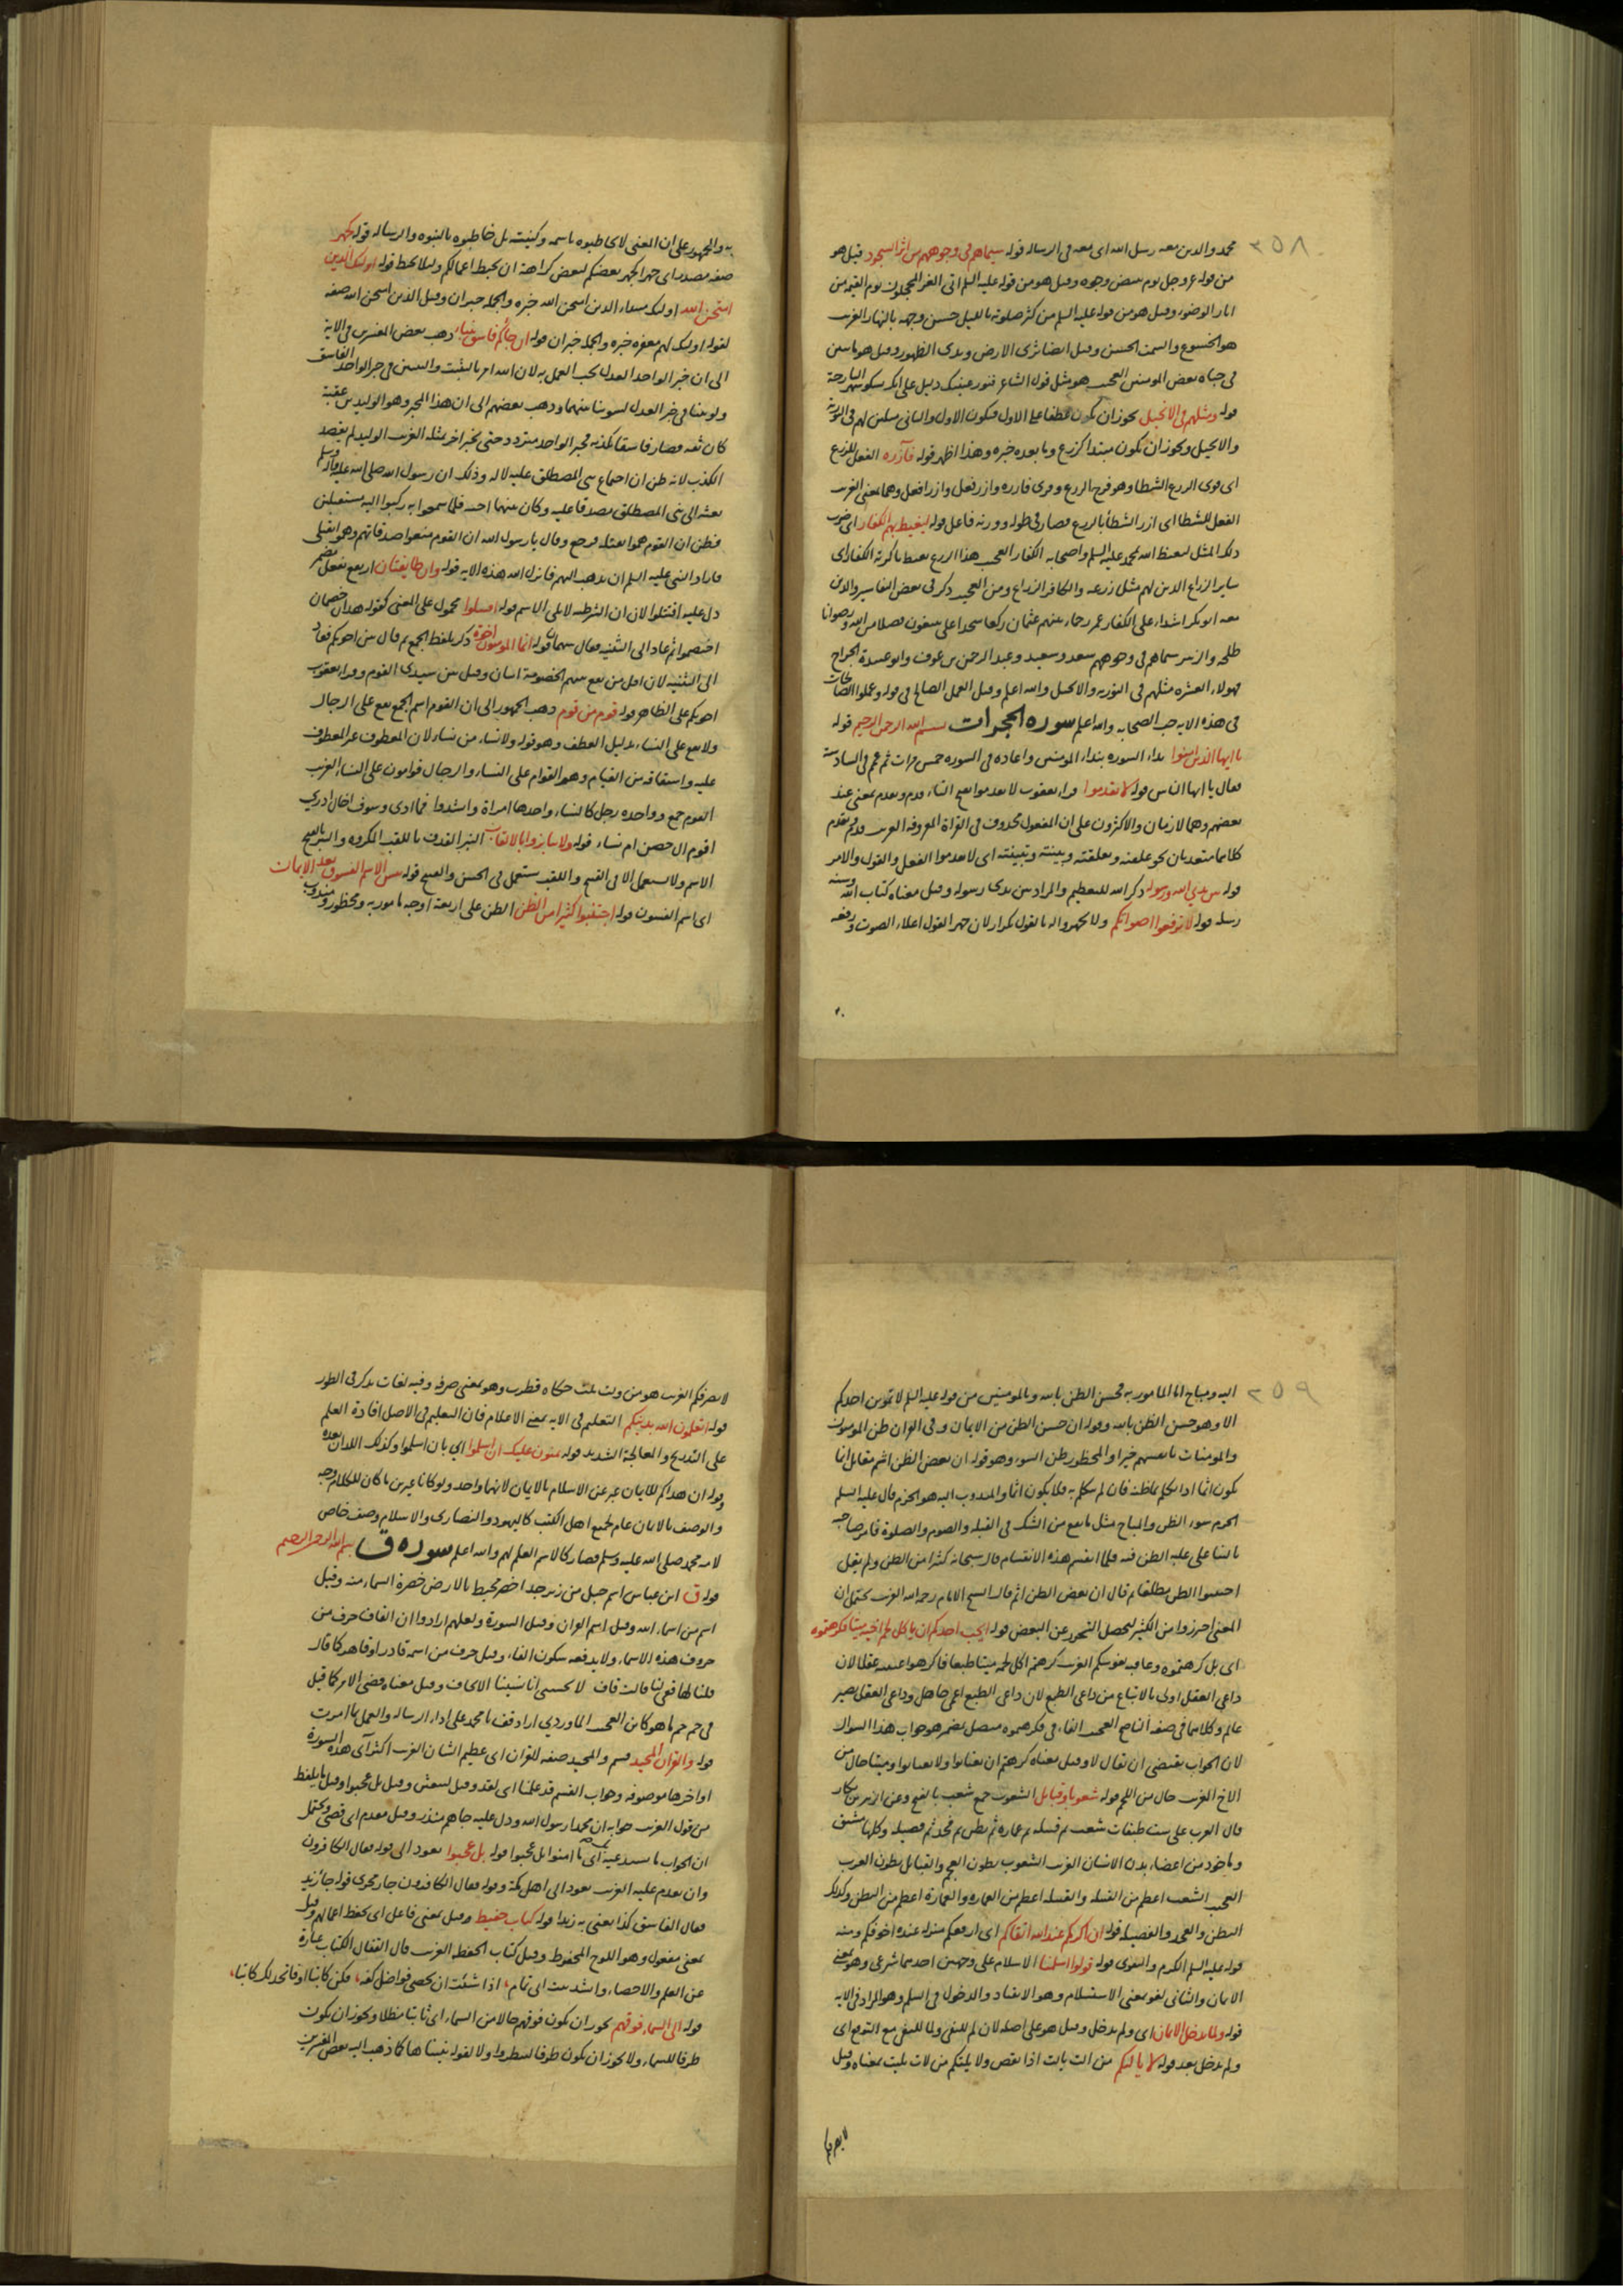 ٢٥٨
محمد والذين معه رسل الله اى معه فى الرسالة قوله سيماهم فى وجوههم من اثر السجود قيل هو
من قوله عز وجل يوم تبيض وجوه وقيل هو من قوله عليه السلم امتى الغر المحجلون يوم القيمة من
اثار الوضوء وقيل هو من قوله عليه السلم من كثر صلوته بالليل حسن وجهه بالنهار الغريب
هو الخشوع والسمت الحسن وقيل ايضا ثرى الارض وندى الطهور وقيل هو ما سن
فى جباه بعض المومنين العجيب هو مثل قول الشاعر فتور عينيك دليل على انك سكو سهر البارحة
قوله ومثلهم فى الانجيل يجوز ان يكون عطفا على الاول فيكون الاول والثانى مثلين لهم فى التورية
والانجيل ويجوز ان يكون مبتدا كزرع وما بعده خبره وهذا اظهر قوله فآزره الفعل للزرع
اى قوى الزرع الشطأ وهو فرخ الزرع وقرى فازره وازر فعل وازر افعل وهما بمعنى الغريب
الفعل للشطا اى ازر الشطأ بالزرع فصار فى طوله ووزنه فاعل قوله ليغيظ بهم الكفار اى ضرب
ذلك المثل ليغيظ الله بمحمد عليه السلم واصحابه الكفار العجيب هذا الزرع يغيظ باكرته الكفار اى
ساير الزراع الذين لهم مثل زرعه والكافر الزراع ومن العجيب ذكر فى بعض التفاسير والذين
معه ابو بكر اشداء على الكفار عمر رحماء بينهم عثمان ركعا سجدا على يبتغون فضلا من الله ورضوانا
طلحة والزبير سيماهم فى وجوههم سعد وسعيد وعبد الرحمن بن عوف وابو عبيدة الجراح
فهولاء العشرة مثلهم فى التورية والانجيل والله اعلم وقيل العمل الصالح فى قوله وعملوا الصالحات
فى هذه الاية حب الصحابة والله اعلم سورة الحجرات بسم الله الرحمن الرحيم قوله
يا ايها الذين امنوا بداء السورة بنداء المومنين واعاده فى السورة خمس مرات ثم عم فى السادسة
فقال يا ايها الناس قوله لا تقدموا قراء يعقوب لا تقدموا بفتح التاء وقدم وتقدم بمعنى عند
بعضهم وهما لازمان والاكثرون على ان المفعول محذوف فى القراة المعروفة الغريب قدم وتقدم
كلاهما متعديان نحو علقته وتعلقته وبينته وتبينته اى لا تقدموا الفعل والقول والامر
قوله بين يدي الله ورسوله ذكر الله للتعظيم والمراد بين يدى رسوله وقيل معناه كتاب الله وسنة
رسله قوله لا ترفعوا اصواتكم ولا تجهروا له بالقول تكرار لان جهر القول اعلاء الصوت ورفعه
به والجمهور على ان المعنى لا تخاطبوه باسمه وكنيته بل خاطبوه بالنبوة والرسالة قوله كجهر
صفة مصدر اى جهرا كجهر بعضكم لبعض كراهة ان تحبط اعمالكم وليلا تحبط قوله اولئك الذين
امتحن الله اولئك مبتداء الذين امتحن الله خبره والجملة خبر ان وقيل الذين امتحن الله صفة
لقوله اولئك لهم مغفرة خبره والجملة خبر ان قوله ان جائكم فاسق بنباء ذهب بعض المفسرين فى الاية
الى ان خبر الواحد العدل يجب العمل به لان الله امر بالتثبت والتبين فى خبر الواحد الفاسق
ولو تبينا فى خبر العدل لسوينا بينهما وذهب بعضهم الى ان هذا المخبر وهو الوليد بن عقبة
كان ثقة فصار فاسقا بكذبه فخبر الواحد متردد حتى يخبر اخر بمثله الغريب الوليد لم يقصد
الكذب لانه ظن ان اجتماع بنى المصطلق عليه لاله وذلك ان رسول الله صلى الله عليه وآله وسلم
بعثه الى بنى المصطلق مصدقا عليه وكان بينهما احنة فلما سمعوا به ركبوا اليه مستقبلين
فظن ان القوم هموا بقتله فرجع وقال يا رسول الله ان القوم منعوا صدقاتهم وهموا بقتلى
فاراد النبى عليه السلم ان يذهب اليهم فانزل الله هذه الاية قوله وان طايفتان ارتفع بفعل مضمر
دل عليه اقتتلوا لان ان الشرطية لا يلى الاسم قوله اقتتلوا محمول على المعنى كقوله هذان خصمان
اختصموا ثم عاد الى التثنية فقال بينهما قوله انما المومنون اخوة ذكر بلفظ الجمع ثم قال بين اخويكم فعاد
الى التثنية لان اقل من يقع بينهم الخصومة اثنان وقيل بين سيدى القوم وقراء يعقوب
اخوتكم على الظاهر قوله قوم من قوم ذهب الجمهور الى ان القوم اسم الجمع يقع على الرجال
ولا يقع على النساء بدليل العطف وهو قوله ولا نساء من نساء لان المعطوف غير المعطوف
عليه واشتقاقه من القيام وهو القوام على النساء والرجال قوامون على النساء الغريب
القوم جمع وواحده رجل كالنساء واحدها امراة وانشدوا فما ادرى وسوف اخال ادري
اقوم ال حصن ام نساء قوله ولا تنابزوا بالالقاب النبز القذف باللقب المكروه والنبز بالفتح
الاسم ولا يستعمل الا فى القبيح واللقب يستعمل فى الحسن والقبيح قوله بئس الاسم الفسوق بعد الايمان
اى اسم الفسوق قوله اجتنبوا كثيرا من الظن الظن على اربعة اوجه مامور به ومحظور ومندوب
٢٥٩
اليه ومباح اما المامور به فحسن الظن بالله وبالمومنين من قوله عليه السلم لا يموتن احدكم
الا وهو حسن الظن بالله وقوله ان حسن الظن من الايمان وفى القران ظن المومنون
والمومنات بانفسهم خيرا والمحظور ظن السوء وهو قوله ان بعض الظن اثم مقاتل انما
يكون اثما اذا تكلم بما ظنه فان لم يتكلم به فلا يكون اثما والمندوب اليه هو الحزم قال عليه السلم
الحزم سوء الظن والمباح مثل ما يقع من الشك فى القبلة والصوم والصلوة فامر صاحبه
بالبنا على غلبة الظن فيه فلما انقسم هذه الاقسام قال سبحانه كثيرا من الظن ولم يقل
اجتنبوا الظن مطلقا ثم قال ان بعض الظن اثم قال الشيخ الامام رحمه الله الغريب يحتمل ان
المعنى احترزوا من الكثير ليحصل التحرز عن البعض قوله ايحب احدكم ان ياكل لحم اخيه ميتا فكرهتموه
اى بل كرهتموه وعافته نفوسكم الغريب كرهتم اكل لحمه ميتا طبعا فاكرهوا غيبته عقلا لان
داعى العقل اولى بالاتباع من داعى الطبع لان داعى الطبع اعمى جاهل وداعى العقل بصير
عالم وكلاهما فى صفة الناصح العجيب الفاء فى فكرهتموه متصل بمضمر هو جواب هذا السوال
لان الجواب يقتضى ان يقال لا وقيل معناه كرهتم ان تغتابوا ولا تغتابوا وميتا حال من
الاخ الغريب حال من اللحم قوله شعوبا وقبايل الشعوب جمع شعب بالفتح وعن الزبير بن بكار
قال العرب على ست طبقات شعب ثم قبيلة ثم عمارة ثم بطن ثم فخذ ثم فصيلة وكلها مشتق
وماخوذ من اعضاء بدن الانسان الغريب الشعوب بطون العجم والقبايل بطون العرب
العجيب الشعب اعظم من القبيلة والقبيلة اعظم من العمارة والعمارة اعظم من البطن وكذلك
البطن والفخذ والفصيلة قوله ان اكرمكم عند الله اتقاكم اى ارفعكم منزلة عنده اخوفكم ومنه
قوله عليه السلم الكرم والتقوى قوله قولوا اسلمنا الاسلام على وجهين احدهما شرعى وهو بمعنى
الايمان والثانى لغوى بمعنى الاستسلام وهو الانقياد والدخول فى السلم وهو المراد فى الاية
قوله ولما يدخل الايمان اى ولم يدخل وقيل هو على اصله لان لم للنفى ولما للنفى مع التوقع اى
ولم يدخل بعد قوله لا يالتكم من الت يالت اذا نقص ولا يلتكم من لات يليت بمعناه وقيل
لا يصرفكم
لا يصرفكم الغريب هو من ولت يلت حكاه قطرب وهو بمعنى صرف وفيه لغات يذكر فى الطور
قوله اتعلمون الله بدينكم التعليم فى الاية بمعنى الاعلام فان التعليم فى الاصل افادة العلم
على التدريج والمعالجة الشديد قوله يمنون عليك ان اسلموا اي بان اسلموا وكذلك اللذان بعده
وقوله ان هداكم للايمان عبر عن الاسلام بالايمان لانهما واحد ولو كانا غيرين ما كان للكلام وجه
والوصف بالايمان عام لجميع اهل الكتب كاليهود والنصارى والاسلام وصف خاص
لامة محمد صلى الله عليه وسلم فصار كالاسم العلم لهم والله اعلم سورة ق بسم الله الرحمن الرحيم
قوله ق ابن عباس اسم جبل من زبرجد اخضر محيط بالارض خضرة السماء منه وقيل
اسم من اسماء الله وقيل اسم القران وقيل السورة ولعلهم ارادوا ان القاف حرف من
حروف هذه الاسماء ولا يدفعه سكون الفاء وقيل حرف من اسمه قادر او قاهر كما قال
قلنا لها قفى لنا قالت قاف لا تحسبى انا نسينا الايجاف وقيل معناه قضى الامر كما قيل
فى حم حم ما هو كائن العجيب الماوردي اراد قف يا محمد على اداء الرسالة والعمل بما امرت
قوله والقران المجيد قسم والمجيد صفة للقران اى عظيم الشان الغريب اكثر آى هذه السورة
اواخرها موصوفة وجواب القسم قد علمنا اى لقد وقيل لتبعثن وقيل بل عجبوا وقيل ما يلفظ
من قول الغريب جوابه ان محمدا رسول الله ودل عليه جاءهم منذر وقيل مقدم اى قضى ويحتمل
ان الجواب ما يستدعيه اى ما امنوا بل عجبوا قوله بل عجبوا يعود الى قوله فقال الكافرون
وان تقدم عليه الغريب يعود الى اهل مكة وقوله فقال الكافرون جار مجرى قوله جاءنى زيد
فقال الفاسق كذا يعنى به زيدا قوله كتاب حفيظ وقيل بمعنى فاعل اى يحفظ اعمالهم وقيل
بمعنى مفعول وهو اللوح المحفوظ وقيل كتاب الحفظة الغريب قال القفال الكتاب عبارة
عن العلم والاحصاء وانشد بيت ابى تمام اذا شئت ان تحصى فواضل كفه فكن كاتبا او فاتخذ لك كاتبا
قوله الى السماء فوقهم يجوز ان يكون فوقهم حالا من السماء اى ثابتا مظلا ويجوز ان يكون
ظرفا للسماء ولا يجوز ان يكون ظرفا لينظروا ولا لقوله بنيناها كما ذهب اليه بعض المعربين